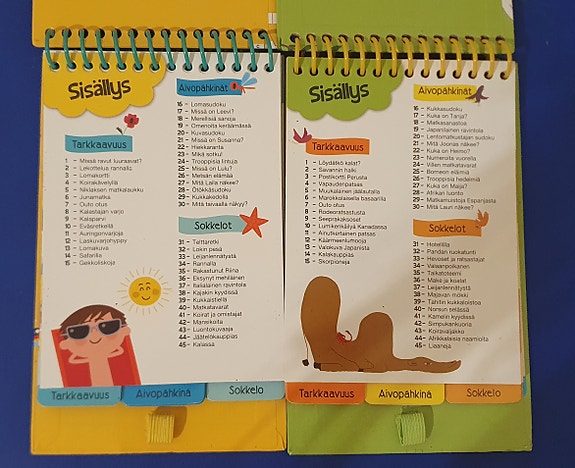 Sisällys
Tarkkaavuus
1 - Missä ravut luuraavat?
2 - Lekottelua rannalla
3 - Lomakortti
4 - Koirakävelyllä
5 - Niklaksen matkalaukku
6 - Junamatka
7 - Outo otus
8 - Kalastajan varjo
9 - Kalaparvi
10 - Eväsretkellä
11 - Auringonvarjoja
12 - Laskuvarjohyppy
13 - Lomakuva
14 - Safarilla
15 - Gekkoliskoja
Aivopähkinät
16 - Lomasudoku
17 - Missä on Leevi?
18 - Merellisiä sanoja
19 - Omenoita keräämässä
20 - Kuvasudoku
21 - Missä on Susanna?
22 - Hiekkaranta
23 - Mikä sotku!
24 - Trooppisia lintuja
25 - Missä on Lulu?
26 - Metsän elämää
27 - Mitä Laila näkee?
28 - Ötökkäsudoku
29 - Kukkakedolla
30 - Mitä taivaalla näkyy?
Sokkelot
31 - Telttaretki
32 - Lokin pesä
33 - Leijanlennätystä
34 - Rannalla
35 - Rakastunut Riina
36 - Eksynyt mehiläinen
37 - Italialainen ravintola
38 - Kajakin kyydissä
39 - Kukkaistiellä
40 - Matkatavarat
41 - Koirat ja omistajat
42 - Mansikoita
43 - Luontokuvaaja
44 - Jäätelökauppias
45 - Kalassa
Tarkkaavuus
Aivopähkinä
Sokkelo
Sisällys
Tarkkaavuus
1 - Löydätkö kalat?
2 - Savannin halki
3 - Postikortti Perusta
4 - Vapaudenpatsas
5 - Muukalainen jäälautalla
6 - Marokkolaisella basaarilla
7 - Outo otus
8 - Rodeoratsastusta
9 - Seepraksoset
10 - Lumikenkäilyä Kanadassa
11 - Ainutkertainen patsas
12 - Käärmeenlumooja
13 - Valokuva Japanista
14 - Kalakauppias
15 - Skorpioneja
Aivopähkinät
16 - Kukkasudoku
17 - Kuka on Tanja?
18 - Matkasanastoa
19 - Japanilainen ravintola
20 - Lentomatkustajan sudoku
21 - Mitä Joonas näkee?
22 - Kuka on Heimo?
23 - Numeroita vuorella
24 - Villen matkatavarat
25 - Borneon elämiä
26 - Trooppisia hedelmiä
27 - Kuka on Maija?
28 - Afrikan luonto
29 - Matkamuistoja Espanjasta
30 - Mitä Lauri näkee?
Sokkelot
31 - Hotellilla
32 - Pandan ruokatunti
33 - Hevoset ja ratsastajat
34 - Valaanpoikanen
35 - Taikatoteemi
36 - Make ja koalat
37 - Leijanlennätystä
38 - Majavan mökki
39 - Tahitin kukkaloistoa
40 - Norsun selässä
41 - Kamelin kyydissä
42 - Simpukankuoria
43 - Koiravaljakko
44 - Afrikkalaisia naamioita
45 - Liaaneja
Tarkkaavuus
Aivopähkinä
Sokkelo